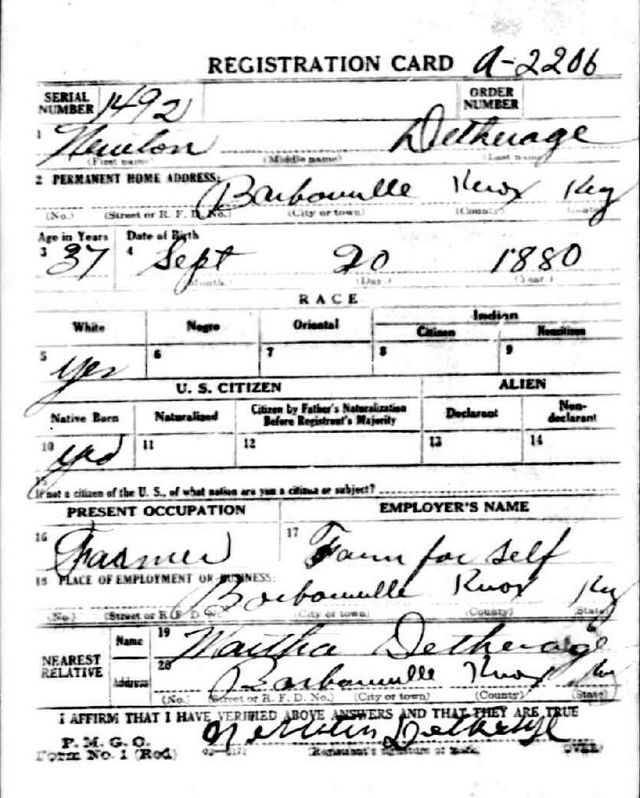 REGISTRATION CARD A-2206
SERIAL NUMBER 1492 ORDER NUMBER
1 Newton Detherage
(First name) (Middle name) (Last name)
2 PERMANENT HOME ADDRESS: Barbourville Knox Ky
(No.) (Street or R. F. D. No.) (City or town) (County) (State)
Age in Years Date of Birth
3 37 4 Sept 20 1880
(Month.) (Day.) (Year.)
RACE
White Negro Oriental Indian
Citizen Noncitizen
5 yes 6 7 8 9
U. S. CITIZEN ALIEN
Native Born Naturalized Citizen by Father's Naturalization Before Registrant's Majority Declarant Non-declarant
10 yes 11 12 13 14
15
If not a citizen of the U. S., of what nation are you a citizen or subject?
PRESENT OCCUPATION EMPLOYER'S NAME
16 Farmer 17 Farm for self
18 PLACE OF EMPLOYMENT OR BUSINESS: Barbourville Knox Ky
(No.) (Street or R. F. D. No.) (City or town) (County) (State)
NEAREST RELATIVE Name 19 Martha Detherage
Address 20 Barbourville Knox Ky
(No.) (Street or R. F. D. No.) (City or town) (County) (State)
I AFFIRM THAT I HAVE VERIFIED ABOVE ANSWERS AND THAT THEY ARE TRUE
P. M. G. O.
Form No. 1 (Red) (Registrant's signature or mark) (OVER)